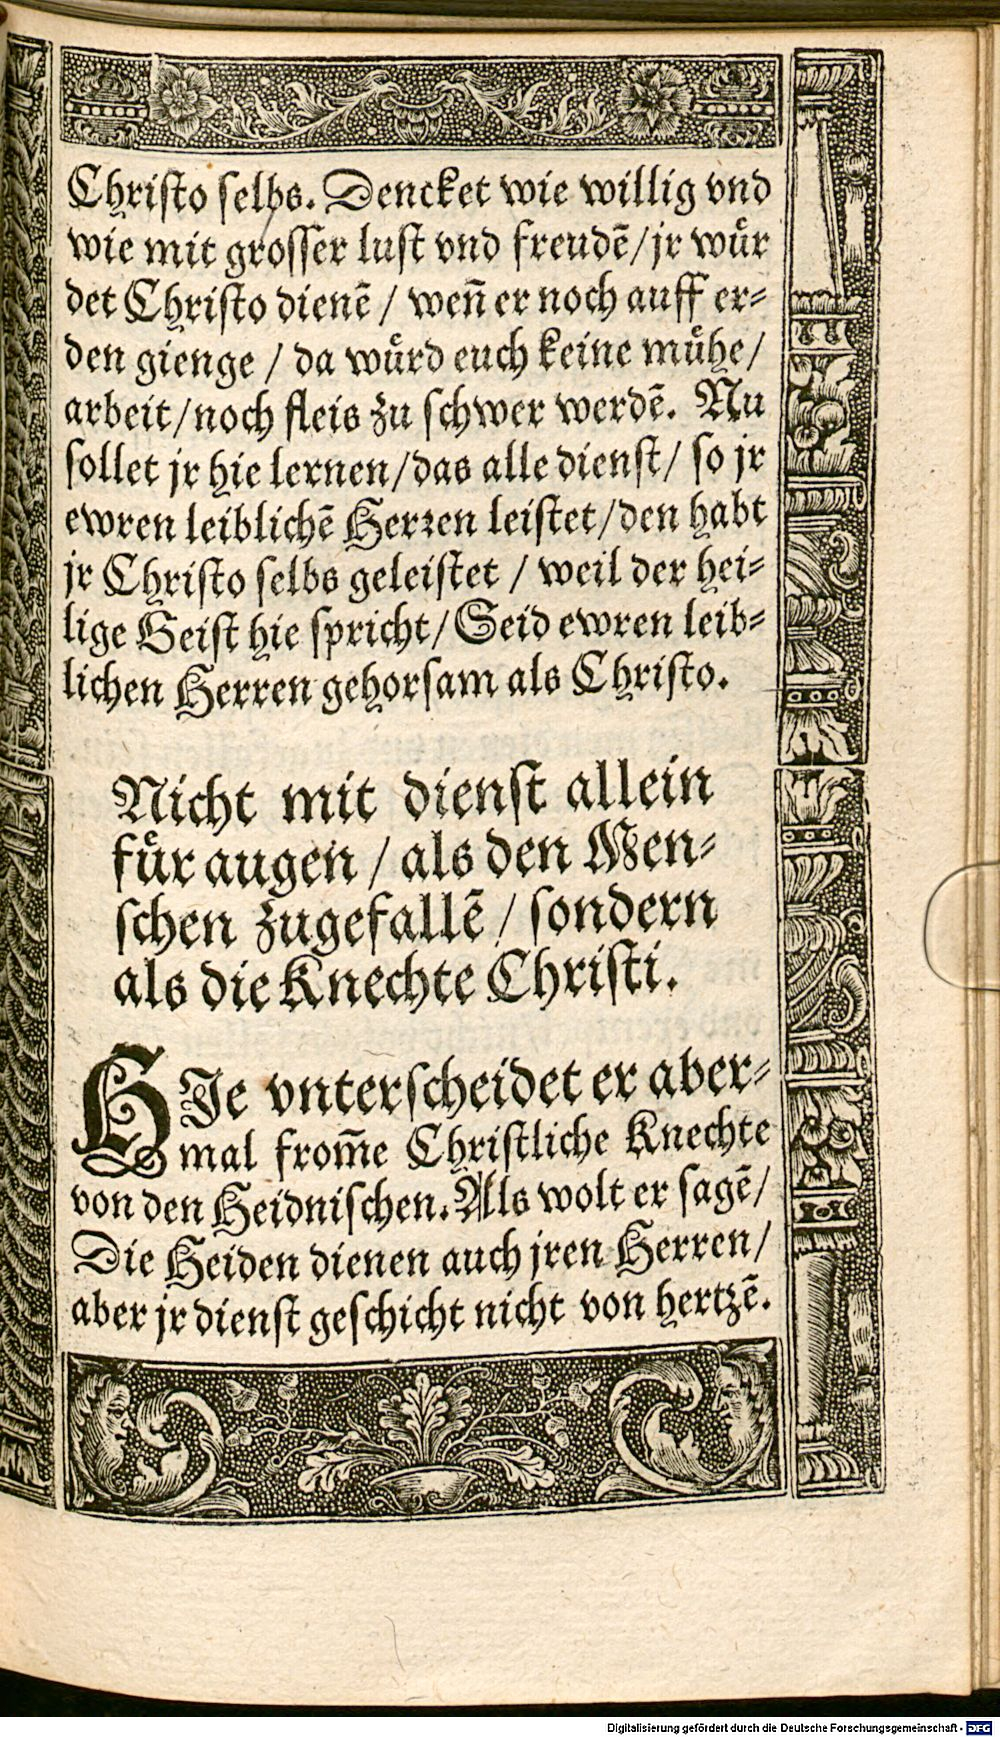 Christo selbs. Dencket wie willig vnd
wie mit grosser lust vnd freudē/jr wuͤr
det Christo dienē / weñ er noch auff er⸗
den gienge / da wuͤrd euch keine muͤhe/
arbeit/noch fleis zu schwer werdē. Nu
sollet jr hie lernen/das alle dienst/ so jr
ewren leiblichē Herꝛen leistet/den habt
jr Christo selbs geleistet / weil der hei⸗
lige Geist hie spricht/Seid ewren leib⸗
lichen Herren gehorsam als Christo.
Nicht mit dienst allein
fuͤr augen / als den Men⸗
schen zugefallē / sondern
als die Knechte Christi.
HIe vnterscheidet er aber⸗
mal from̄e Christliche Knechte
von den Heidnischen. Als wolt er sagē/
Die Heiden dienen auch jren Herren/
aber jr dienst geschicht nicht von hertzē.
Digitalisierung gefördert durch die Deutsche Forschungsgemeinschaft - DFG